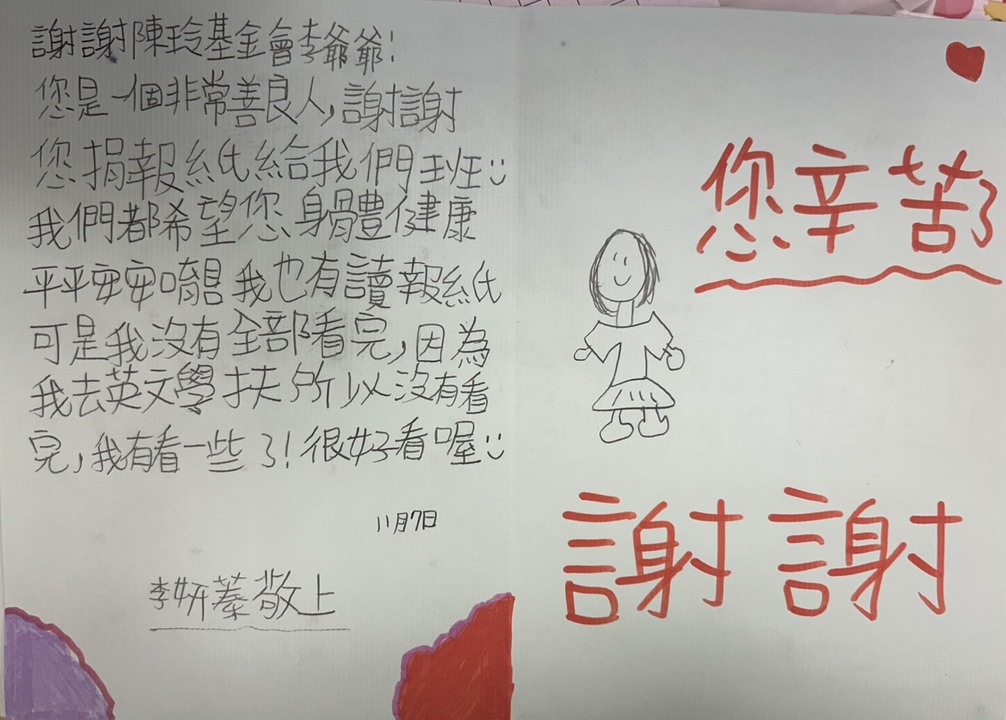 謝謝陳玲基金會李爺爺!
您是一個非常善良人,謝謝
您捐報紙給我們班
我們都希望您身體健康
平平安安喔!我也有讀報紙
可是我沒有全部看完,因為
我去英文學扶所以沒有看
完,我有看一些了!很好看喔
11月7日
李妍蓁敬上
您辛苦了
謝謝